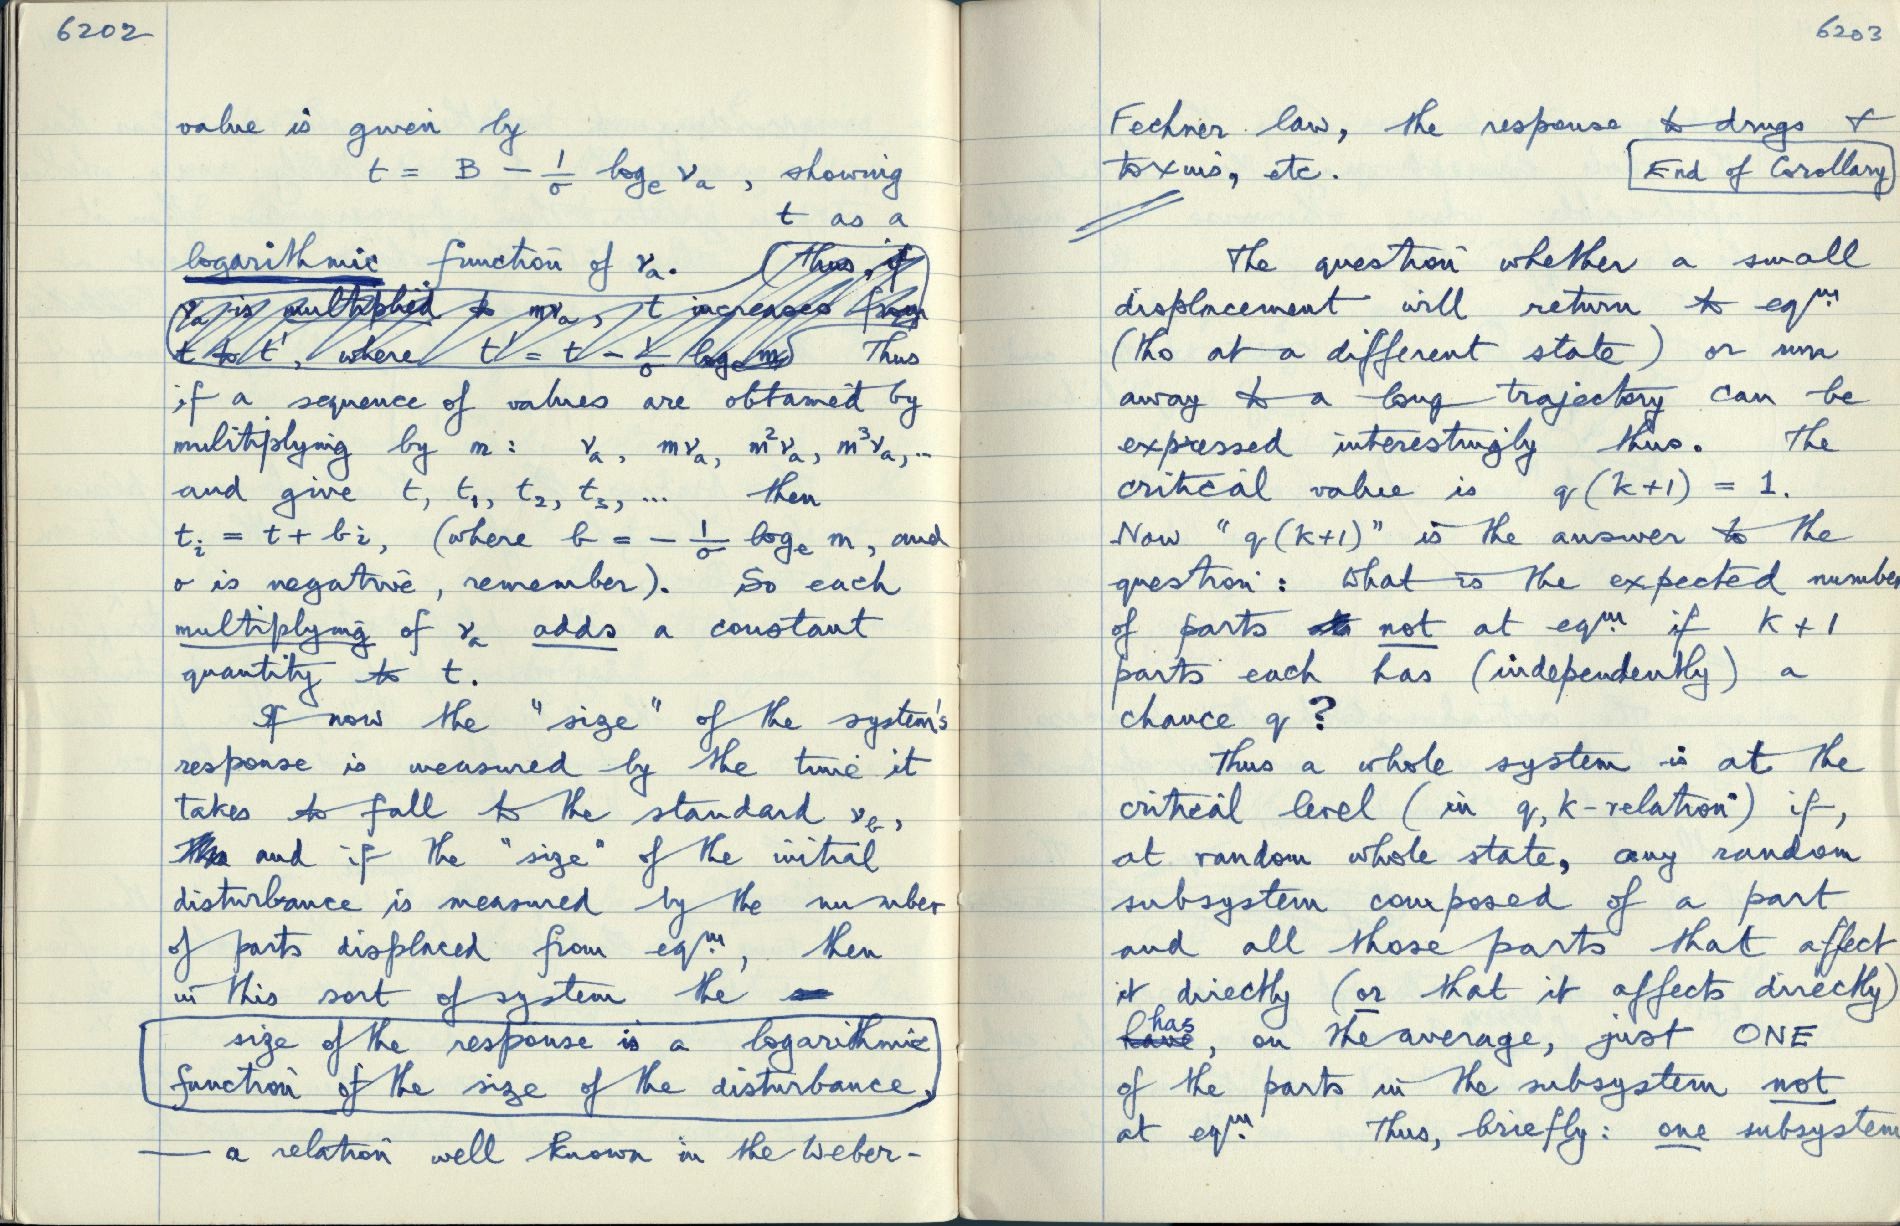 6202
value is given by
t = B − 1/σ logₑ νₐ, showing
t as a
logarithmic function of νₐ. (Thus, if
νₐ is multiplied to mνₐ, t increases from
t to t', where t' = t − 1/σ logₑ m) Thus
if a sequence of values are obtained by
multiplying by m: νₐ, mνₐ, m²νₐ, m³νₐ,...
and give t, t₁, t₂, t₃, ... then
tᵢ = t + bi, (where b = − 1/σ logₑ m, and
σ is negative, remember). So each
multiplying of νₐ adds a constant
quantity to t.
If now the "size" of the system's
response is measured by the time it
takes to fall to the standard ν_b,
and if the "size" of the initial
disturbance is measured by the number
of parts displaced from eqᵐ., then
in this sort of system the
size of the response is a logarithmic
function of the size of the disturbance,
— a relation well known in the Weber-
6203
Fechner law, the response to drugs &
toxins, etc. End of Corollary
The question whether a small
displacement will return to eqᵐ.
(tho at a different state) or run
away to a long trajectory can be
expressed interestingly thus. The
critical value is q(k+1) = 1.
Now "q(k+1)" is the answer to the
question: What is the expected number
of parts not at eqᵐ. if k+1
parts each has (independently) a
chance q?
Thus a whole system is at the
critical level (in q, k-relation) if,
at random whole state, any random
subsystem composed of a part
and all those parts that affect
it directly (or that it affects directly)
have has, on the average, just ONE
of the parts in the subsystem not
at eqᵐ. Thus, briefly: one subsystem